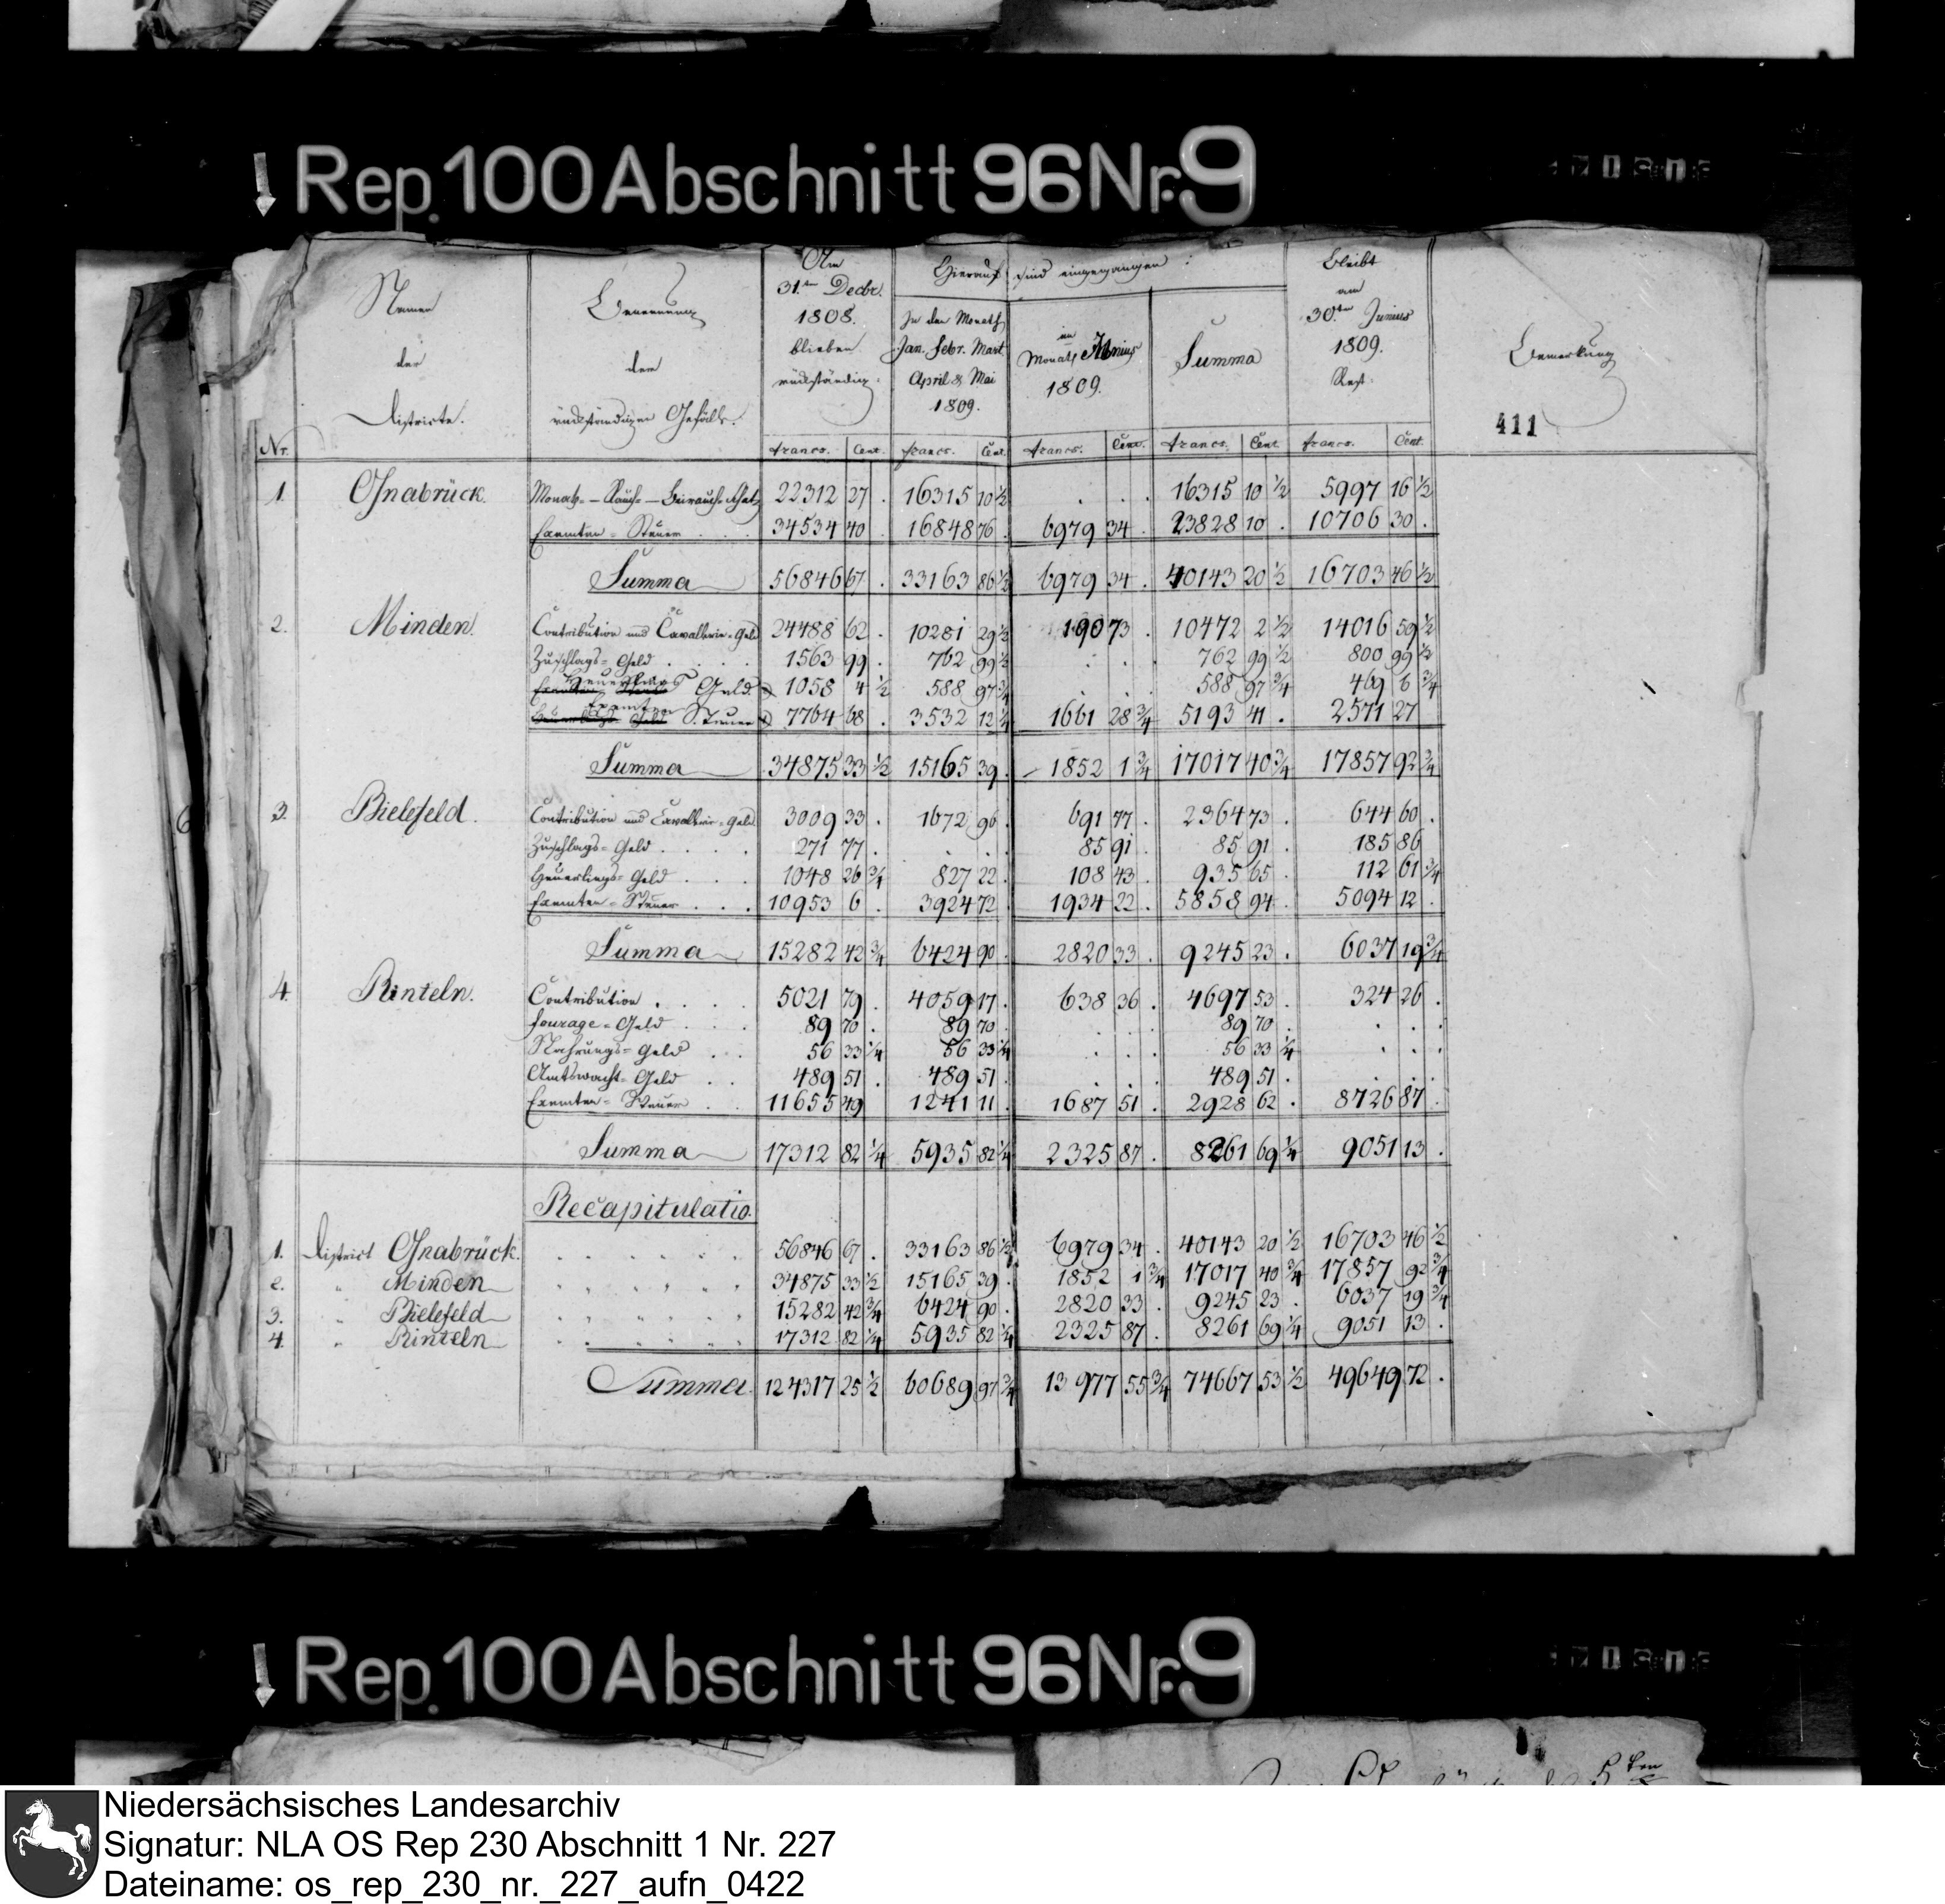 Rep. 100 Abschnitt 96 Nr. 9
Nr.
Namen
der
Districte.
Benennung
der
rückständigen Gefälle.
Am
31.ten Decbr.
1808.
blieben
rückständig:
Hierauf sind eingegangen:
In den Monath
Jan. Febr. Mart
April & Mai
1809.
im
Monath Junius
1809.
Summa
Bleibt
am
30.ten Junius
1809.
Rest:
Bemerkung
411
francs. Cent. francs. Cent. francs. Cent. francs. Cent francs. Cent.
1. Osnabrück. Monats- Rauch- 22312 27 . 16315 10 ½ . . . 16315 10 ½ 5997 16 ½
Exemten-Steuer 34534 40 . 16848 76 . 6979 34 . 23828 10 . 10706 30 .
Summa 56846 67 . 33163 86 ½ 6979 34 . 40143 20 ½ 16703 46 ½
2. Minden. Contribution und Cavallerie-Geld 24488 62 . 10281 29 ½ 190 73 . 10472 2 ½ 14016 59 ½
Zuschlags-Geld 1563 99 . 762 99 ½ . . 762 99 ½ 800 99 ½
Heuerlings Geld 1058 4 ½ 588 97 ¾ . . . 588 97 ¾ 469 6 ¾
Exemten Steuer 7764 68 . 3532 12 ¼ 1661 28 ¾ 5193 41 . 2571 27
Summa 34875 33 ½ 15165 39 . 1852 1 ¾ 17017 40 ¾ 17857 92 ¾
3. Bielefeld. Contribution und Cavallerie-Geld 3009 33 . 1672 96 . 691 77 . 2364 73 . 644 60 .
Zuschlags-Geld 271 77 . . . . 85 91 . 85 91 . 185 86
Heuerlings-Geld 1048 26 ¾ 827 22 . 108 43 . 935 65 . 112 61 ¾
Exemten-Steuer 10953 6 . 3924 72 . 1934 22 . 5858 94 . 5094 12 .
Summa 15282 42 ¾ 6424 90 . 2820 33 . 9245 23 . 6037 19 ¾
4. Rinteln. Contribution 5021 79 . 4059 17 . 638 36 . 4697 53 . 324 26 .
Fourage-Geld 89 70 . 89 70 . . . . 89 70 . . . .
Nahrungs-Geld 56 33 ¼ 56 33 ¼ . . . 56 33 ¼ . . .
Amtswacht-Geld 489 51 . 489 51 . . . . 489 51 . . . .
Exemten-Steuer 11655 49 1241 11 . 1687 51 . 2928 62 . 8726 87 .
Summa 17312 82 ¼ 5935 82 ¼ 2325 87 . 8261 69 ¼ 9051 13 .
Recapitulatio.
1. District Osnabrück. 56846 67 . 33163 86 ½ 6979 34 . 40143 20 ½ 16703 46 ½
2. " Minden 34875 33 ½ 15165 39 . 1852 1 ¾ 17017 40 ¾ 17857 92 ¾
3. " Bielefeld 15282 42 ¾ 6424 90 . 2820 33 . 9245 23 . 6037 19 ¾
4. " Rinteln 17312 82 ¼ 5935 82 ¼ 2325 87 . 8261 69 ¼ 9051 13 .
Summa 124317 25 ½ 60689 97 ¾ 13977 55 ¾ 74667 53 ½ 49649 72 .
Rep. 100 Abschnitt 96 Nr. 9
Niedersächsisches Landesarchiv
Signatur: NLA OS Rep 230 Abschnitt 1 Nr. 227
Dateiname: os_rep_230_nr._227_aufn_0422